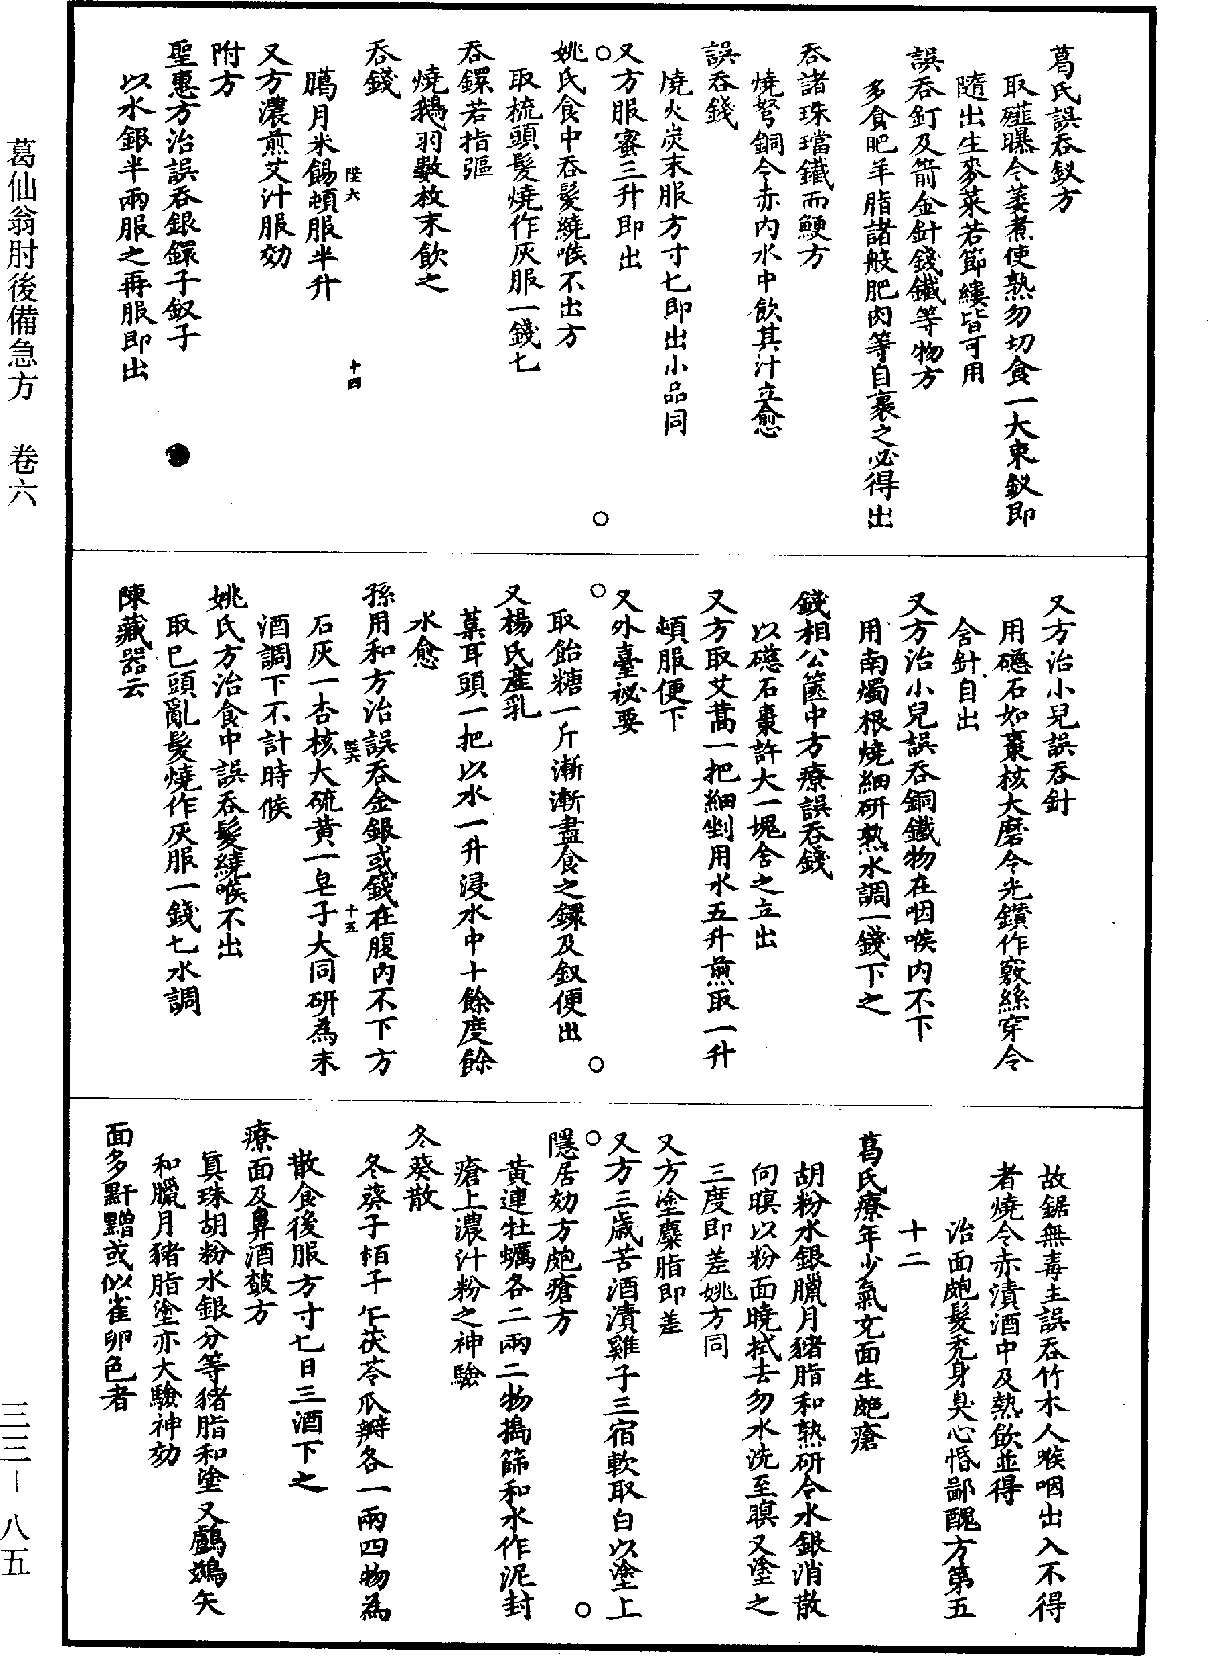 葛氏誤吞釵方
取薤曝令萎煮使熟勿切食一大束釵即
隨出生麥菜若節縷皆可用
誤吞釘及箭金針錢鐵等物方
多食肥羊脂諸般肥肉等自裹之必得出
吞諸珠璫鐵而鯁方
燒弩銅令赤內水中飲其汁立愈
誤吞錢
燒火炭末服方寸匕即出小品同
又方服蜜三升即出
姚氏食中吞髮繞喉不出方
取梳頭髮燒作灰服一錢匕
吞鐶若指彄
燒鵝羽數枚末飲之
吞錢
陸六 十四
臈月米餳頓服半升
又方濃煎艾汁服効
附方
聖惠方治誤吞銀鐶子釵子
以水銀半兩服之再服即出
又方治小兒誤吞針
用磁石如棗核大磨令光鑽作竅絲穿令
含針自出
又方治小兒誤吞銅鐵物在咽喉內不下
用南燭根燒細研熟水調一錢下之
錢相公篋中方療誤吞錢
以磁石棗許大一塊含之立出
又方取艾蒿一把細剉用水五升煎取一升
頓服便下
又外臺祕要
取飴糖一斤漸漸盡食之鐶及釵便出
又楊氏產乳
葈耳頭一把以水一升浸水中十餘度餘
水愈
孫用和方治誤吞金銀或錢在腹內不下方
陸六 十五
石灰一杏核大硫黃一皂子大同研為末
酒調下不計時候
姚氏方治食中誤吞髮繞喉不出
取巳頭亂髮燒作灰服一錢匕水調
陳藏器云
故鋸無毒主誤吞竹木人喉咽出入不得
者燒令赤漬酒中及熱飲並得
治面皰髮禿身臭心惛鄙醜方第五
十二
葛氏療年少氣充面生皰瘡
胡粉水銀臘月豬脂和熟研令水銀消散
向暝以粉面曉拭去勿水洗至暝又塗之
三度即差姚方同
又方塗麋脂即差
又方三歲苦酒漬雞子三宿軟取白以塗上
隱居効方皰瘡方
黃連牡蠣各二兩二物搗篩和水作泥封
瘡上濃汁粉之神驗
冬葵散
冬葵子栢子仁茯苓瓜瓣各一兩四物為
散食後服方寸匕日三酒下之
療面及鼻酒皶方
真珠胡粉水銀分等豬脂和塗又鸕鷀矢
和臘月豬脂塗亦大驗神効
面多䵟䵳或似雀卵色者
葛仙翁肘後備急方 卷六
三三－八五